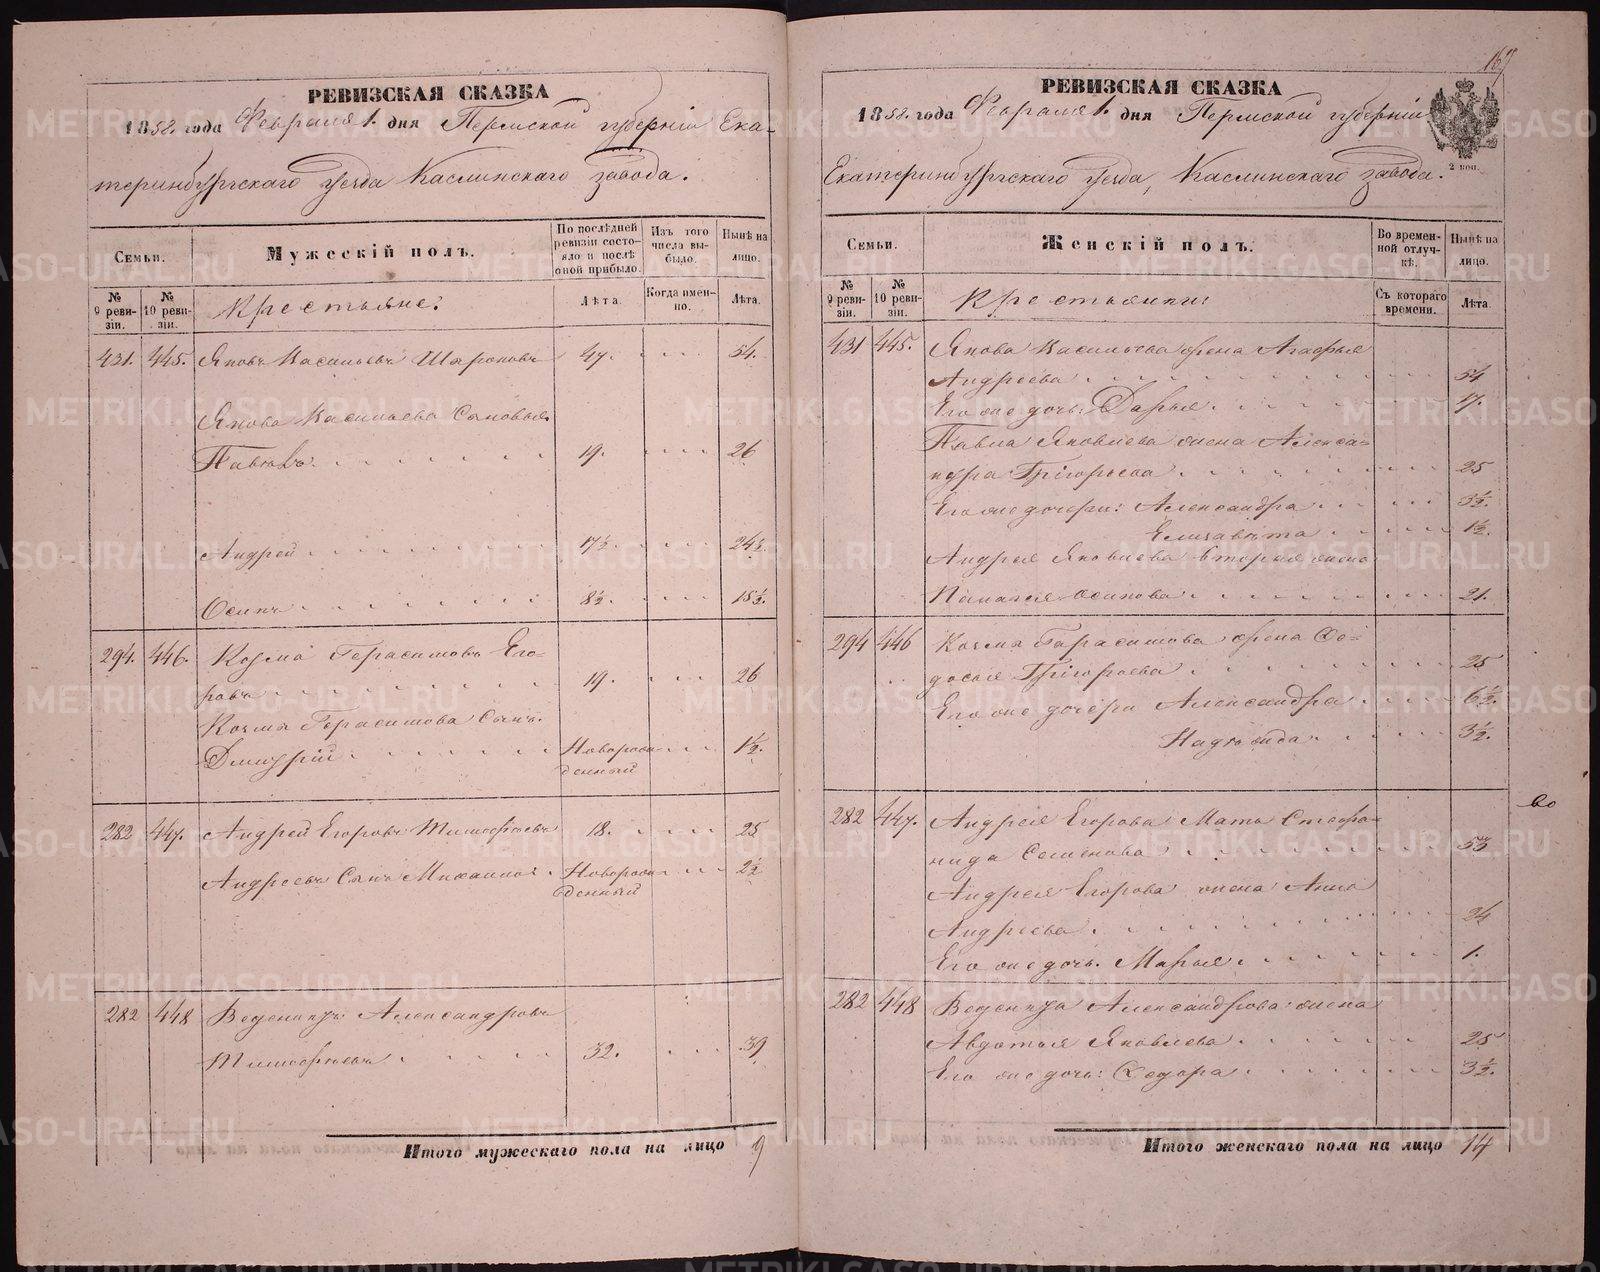 РЕВИЗСКАЯ СКАЗКА
1858. года Февраля 1. дня Пермской губерніи Ека-
теринбургскаго уезда Каслинскаго завода.
Семьи.
Мужескій полъ.
По послѣдней ревизіи состояло и послѣ оной прибыло.
Изъ того числа выбыло.
Нынѣ на лицо.
№ 9 ревизіи.
№ 10 ревизіи.
Крестьяне:
Лѣта.
Когда именно.
Лѣта.
431. 445. Яковъ Васильевъ Шароновъ 47. 54.
Якова Васильева Сыновья
Павелъ 19. 26
Андрей 17½ 24½
Осипъ 8½ 15½.
294. 446. Козма Герасимовъ Его-
ровъ 19. 26
Козмы Герасимова Сынъ.
Дмитрій Новорож- 1½.
денный
282 447. Андрей Егоровъ Тимофѣевъ 18. 25
Андреевъ Сынъ Михаилъ Новорож- 2½
денный
282 448 Ведениктъ Александровъ
Тимофѣевъ 32. 39
Итого мужескаго пола на лицо 9
167
РЕВИЗСКАЯ СКАЗКА
1858. года Февраля 1. дня Пермской губерніи
2 коп.
Екатеринбургскаго уезда, Каслинскаго завода.
Семьи.
Женскій полъ.
Во временной отлучкѣ.
Нынѣ на лицо.
№ 9 ревизіи.
№ 10 ревизіи.
Крестьянки:
Съ котораго времени.
Лѣта.
431 445. Якова Васильева жена Агафья
Андреева 54
Его же дочь: Дарья 17.
Павла Яковлева жена Алекса-
ндра Григорьева 25
Его же дочери: Александра 3½.
Елизавѣта 1½.
Андрея Яковлева вторая жена
Палагея Осипова 21.
294 446 Козмы Герасимова жена Фе-
досья Григорьева 25
Его же дочери Александра 6½.
Надежда 3½.
282 447. Андрея Егорова Мать Стефа-
нида Семенова 53
во
Андрея Егорова жена Анна
Андреева 24
Его же дочь. Марья 1.
282 448 Веденикта Александрова жена
Авдотья Яковлева 25
Его же дочь: Федора 3½.
Итого женскаго пола на лицо 14
METRIKI.GASO-URAL.RU